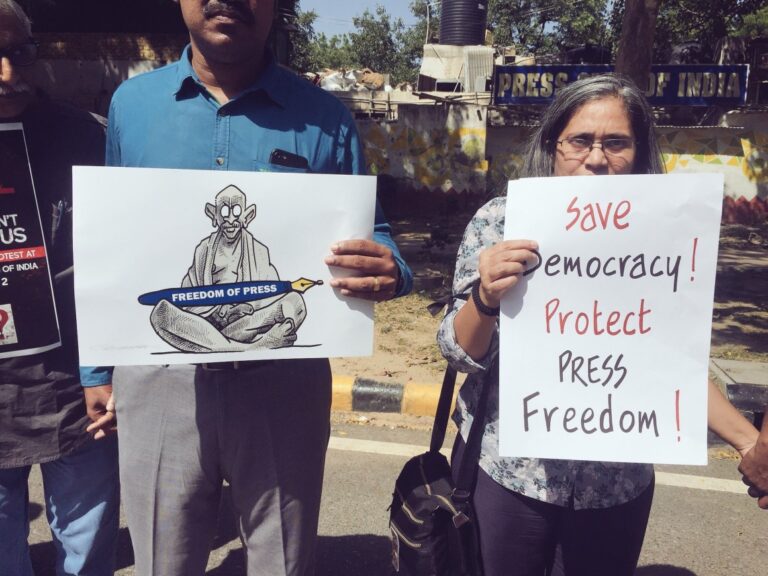 PRESS OF INDIA
N'T
US
OTEST AT
OF INDIA
2
?
FREEDOM OF PRESS
Save
Democracy!
Protect
PRESS
Freedom!